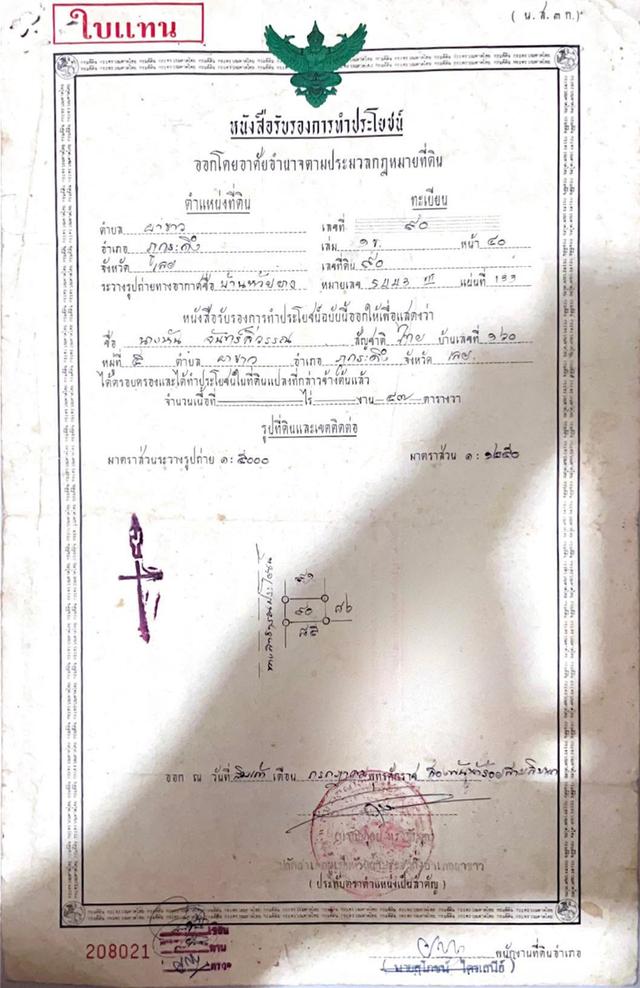 ใบแทน
(น.ส.๓ ก.)
หนังสือรับรองการทำประโยชน์
ออกโดยอาศัยอำนาจตามประมวลกฎหมายที่ดิน
ตำแหน่งที่ดิน
ทะเบียน
ตำบล ผาขาว เลขที่ ๙๐
อำเภอ ภูกระดึง เล่ม ๑ ข. หน้า ๔๐
จังหวัด เลย เลขที่ดิน ๙๐
ระวางรูปถ่ายทางอากาศชื่อ บ้านห้วยยาง หมายเลข 5443 III แผ่นที่ 133
หนังสือรับรองการทำประโยชน์ฉบับนี้ออกให้เพื่อแสดงว่า
ชื่อ สัญชาติ ไทย บ้านเลขที่ ๑๖๐
หมู่ที่ ๕ ตำบล ผาขาว อำเภอ ภูกระดึง จังหวัด เลย
ได้ครอบครองและได้ทำประโยชน์ในที่ดินแปลงที่กล่าวข้างต้นแล้ว
จำนวนเนื้อที่ ไร่ งาน ๔๗ ตารางวา
รูปที่ดินและเขตติดต่อ
มาตราส่วนระวางรูปถ่าย ๑ : ๕๐๐๐ มาตราส่วน ๑ : ๑๒๕๐
๙๐
๘๖
ออก ณ วันที่ เดือน กรกฎาคม พุทธศักราช
(ประทับตราตำแหน่งเป็นสำคัญ)
208021
เขียน
ทาน
ตรวจ
พนักงานที่ดินอำเภอ